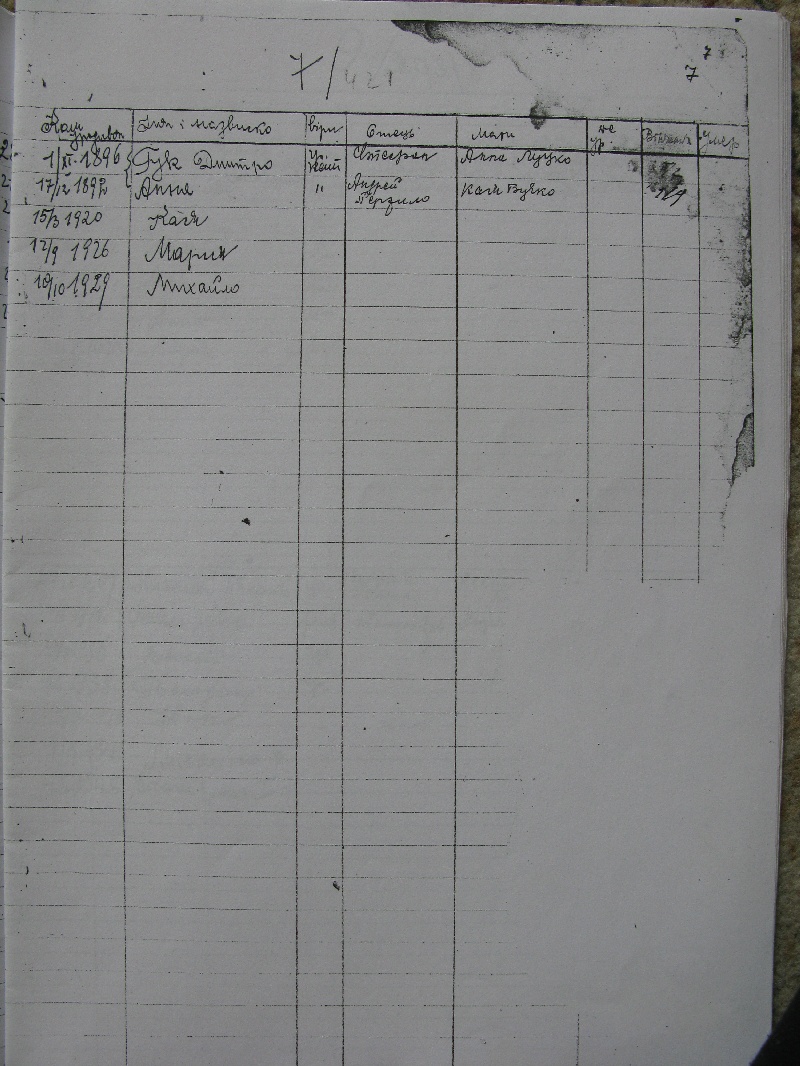 7/421
7
7
Коли вродився Імя і назвиско віри Отець Мати не ур. Вінчаня Умер
1/XI. 1896 Гук Дмитро Стефан Анна Луцко
17/IV 1892 Анна " Андрей Кася Бучко
15/3 1920 Кася
12/9 1926 Мария
10/10 1929 Михайло